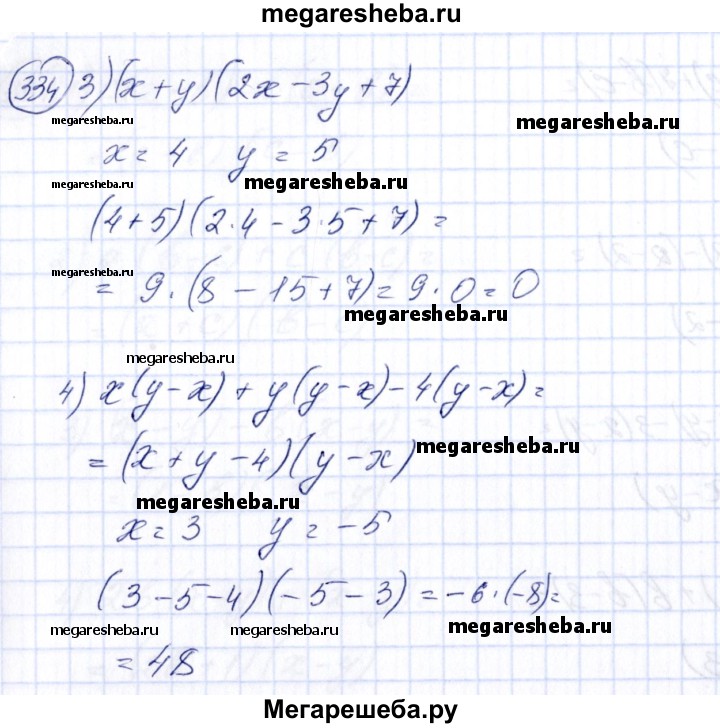 megaresheba.ru
334) 3) (x + y) (2x - 3y + 7)
megaresheba.ru
megaresheba.ru
x = 4 y = 5
megaresheba.ru
megaresheba.ru
(4 + 5) (2·4 - 3·5 + 7) =
megaresheba.ru
= 9 · (8 - 15 + 7) = 9 · 0 = 0
megaresheba.ru
megaresheba.ru
4) x(y - x) + y(y - x) - 4(y - x) =
= (x + y - 4) (y - x)
megaresheba.ru
megaresheba.ru
x = 3 y = -5
(3 - 5 - 4) (-5 - 3) = -6 · (-8) =
megaresheba.ru
megaresheba.ru
megaresheba.ru
= 48
Мегарешеба.ру